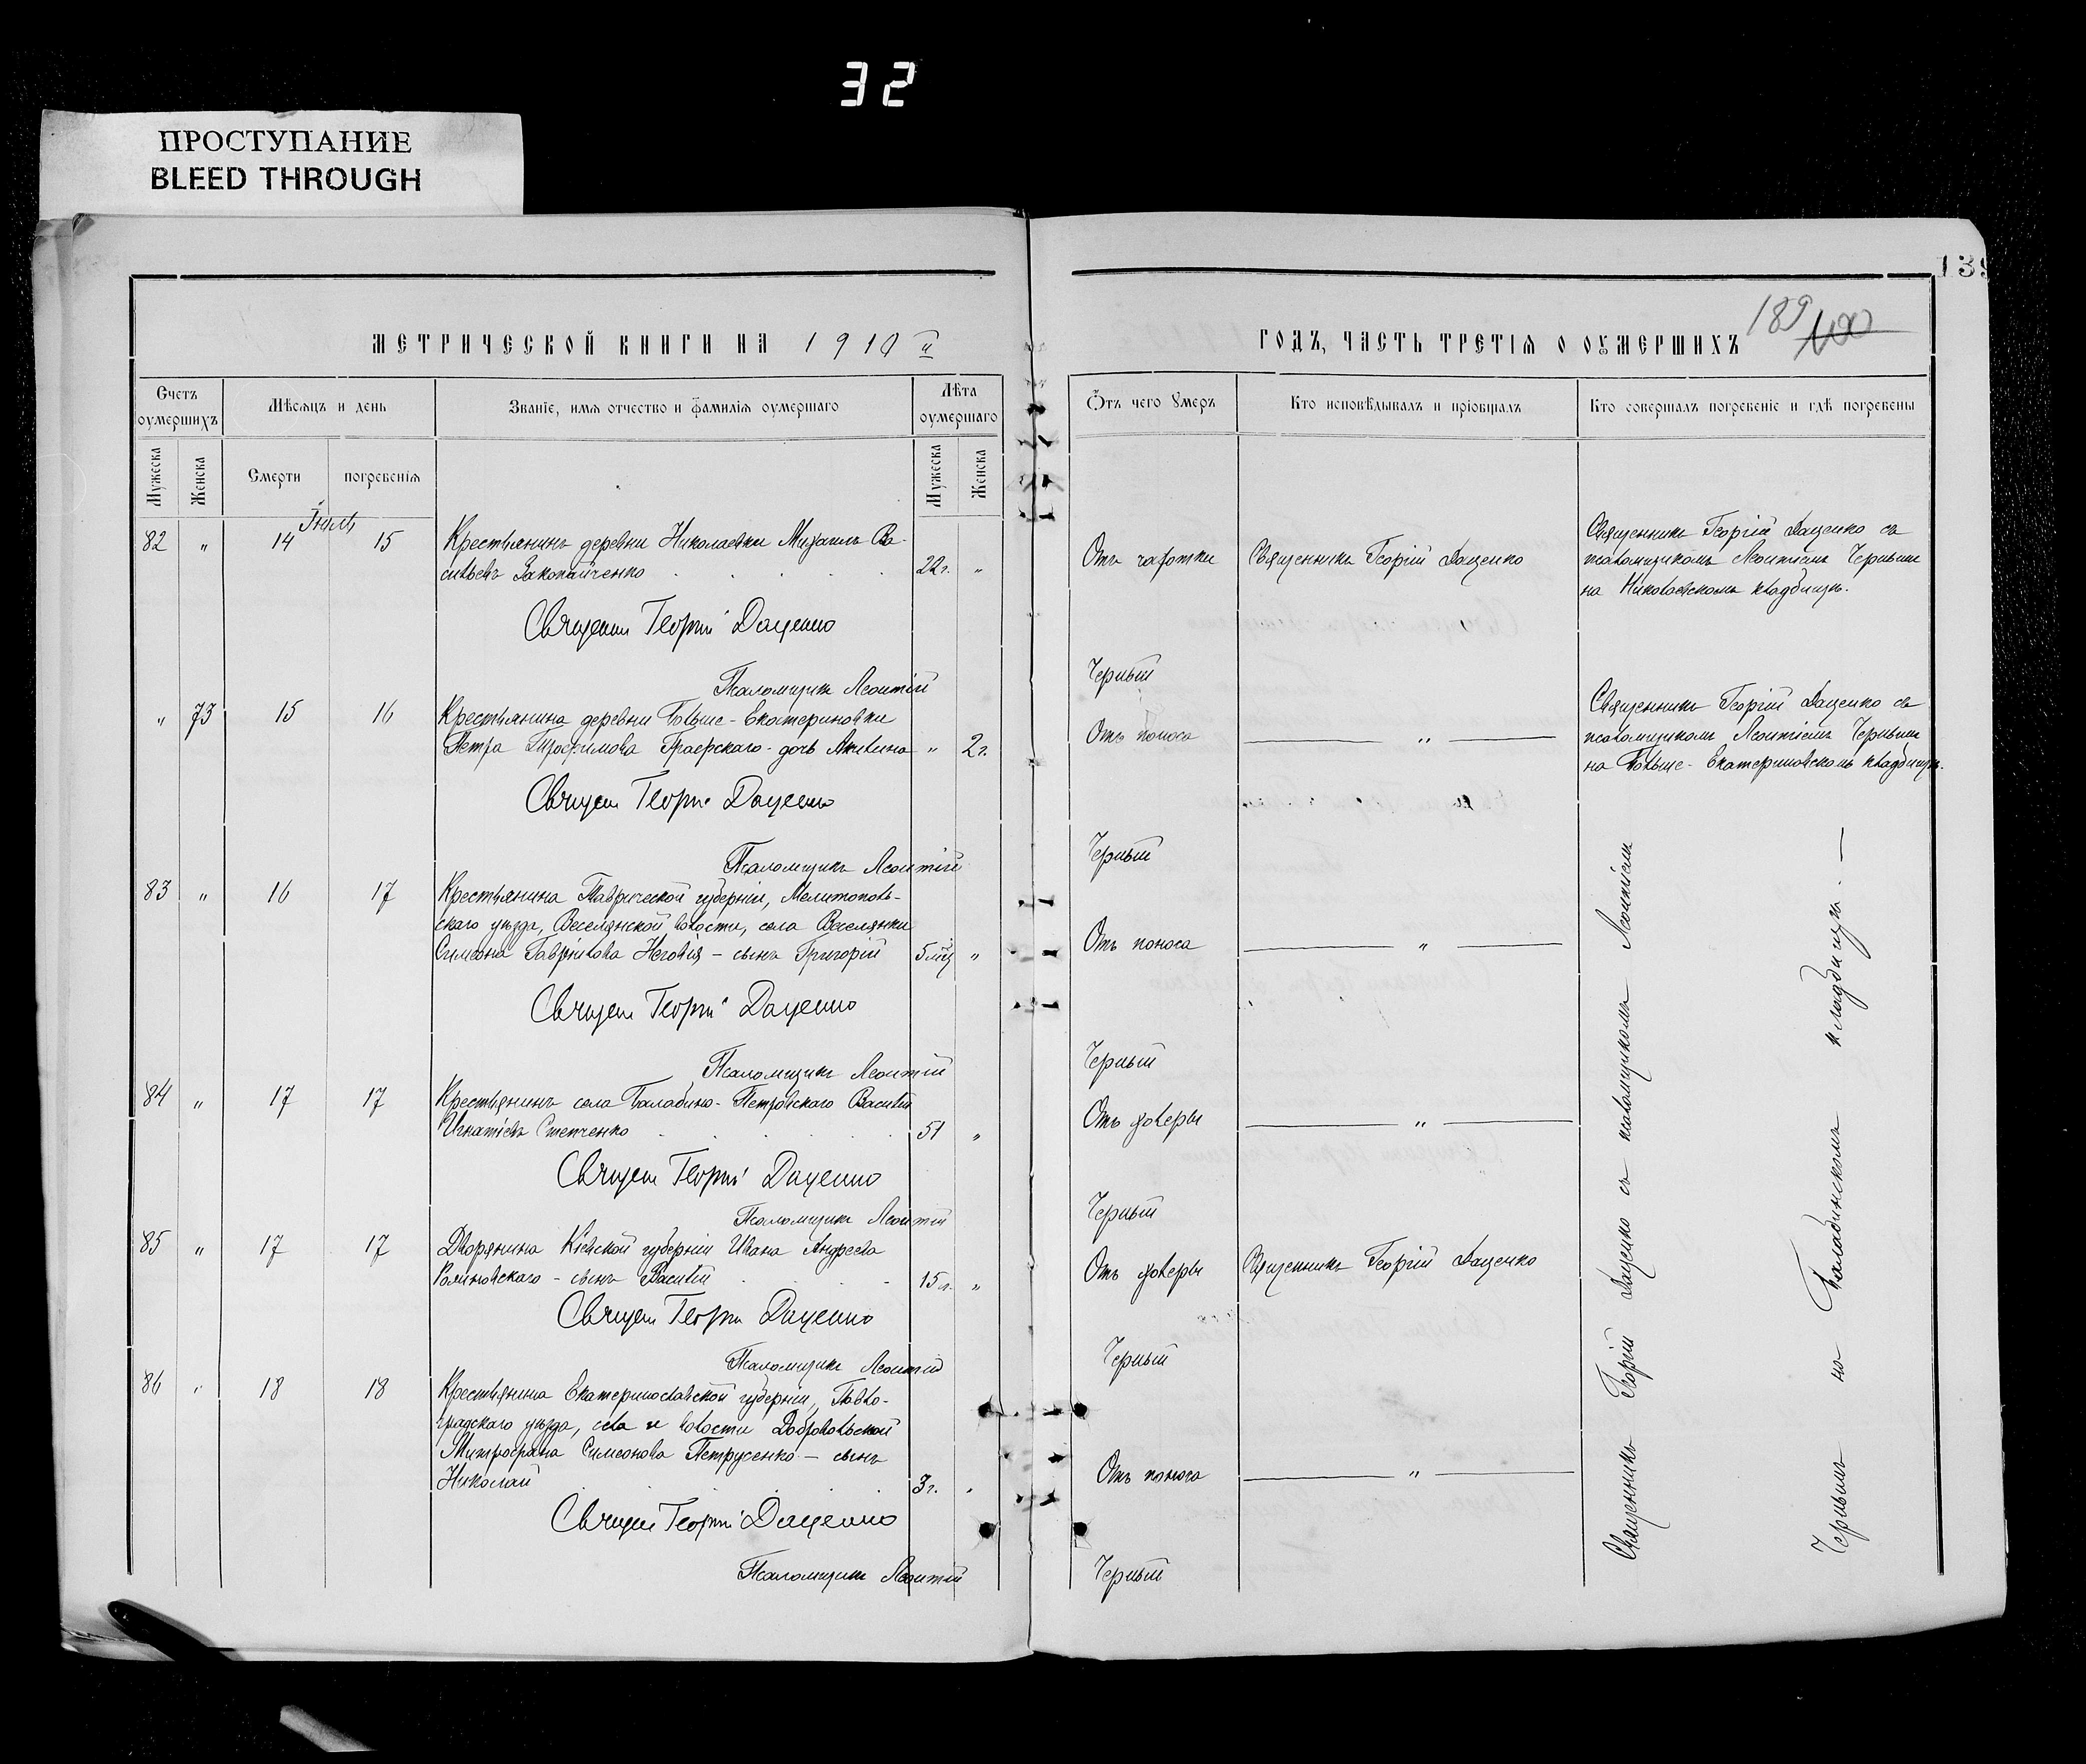 32
ПРОСТУПАНИЕ
BLEED THROUGH
139
МЕТРИЧЕСКОЙ КНИГИ НА 1910 й
ГОДЪ, ЧАСТЬ ТРЕТІЯ О ОУМЕРШИХЪ
189
Счетъ оумершихъ
Мѣсяцъ и день
Званіе, имя отчество и фамилія оумершаго
Лѣта оумершаго
Отъ чего умеръ
Кто исповѣдывалъ и пріобщалъ
Кто совершалъ погребеніе и гдѣ погребены
Мужеска
Женска
Смерти
погребенія
Мужеска
Женска
Іюль
82 " 14 15 Крестьянинъ деревни Николаевки Михаилъ Ва-
сильевъ Закопайченко 22г. "
Отъ чахотки
Священникъ Георгій Даценко
Священникъ Георгій Даценко съ
псаломщикомъ Леонтіемъ Чернымъ
на Николаевскомъ кладбищѣ.
Священ Георгій Даценко
Псаломщикъ Леонтій Черный
" 73 15 16 Крестьянина деревни Больше-Екатериновки
Петра Трофимова Граерскаго - дочь Акилина " 2г.
Отъ поноса
"
Священникъ Георгій Даценко съ
псаломщикомъ Леонтіемъ Чернымъ
на Больше-Екатериновскомъ кладбищѣ.
Священ Георгій Даценко
Псаломщикъ Леонтій Черный
83 " 16 17 Крестьянина Таврической губерніи, Мелитополь-
скаго уѣзда, Веселянской волости, села Веселянки
Симеона Гавріилова – сынъ Григорій 5 мѣц "
Отъ поноса
"
Священ Георгій Даценко
Псаломщикъ Леонтій Черный
84 " 17 17 Крестьянинъ села Балабино-Петровскаго Василій
Игнатіевъ Степченко 51 "
Отъ холеры
"
Священ Георгій Даценко
Псаломщикъ Леонтій Черный
85 " 17 17 Дворянина Кіевской губерніи Ивана Андреева
сынъ Василій 15 л. "
Отъ холеры
Священникъ Георгій Даценко
Священ Георгій Даценко
Псаломщикъ Леонтій Черный
86 " 18 18 Крестьянина Екатеринославской губерніи, Павло-
градскаго уѣзда, села и волости Добровольской
Митрофана Симеонова Петрусенко – сынъ
Николай 3г. "
Отъ поноса
"
Священ Георгій Даценко
Псаломщикъ Леонтій Черный
Священникъ Георгій Даценко съ псаломщикомъ Леонтіемъ
Чернымъ на Балабинскомъ кладбищѣ. —